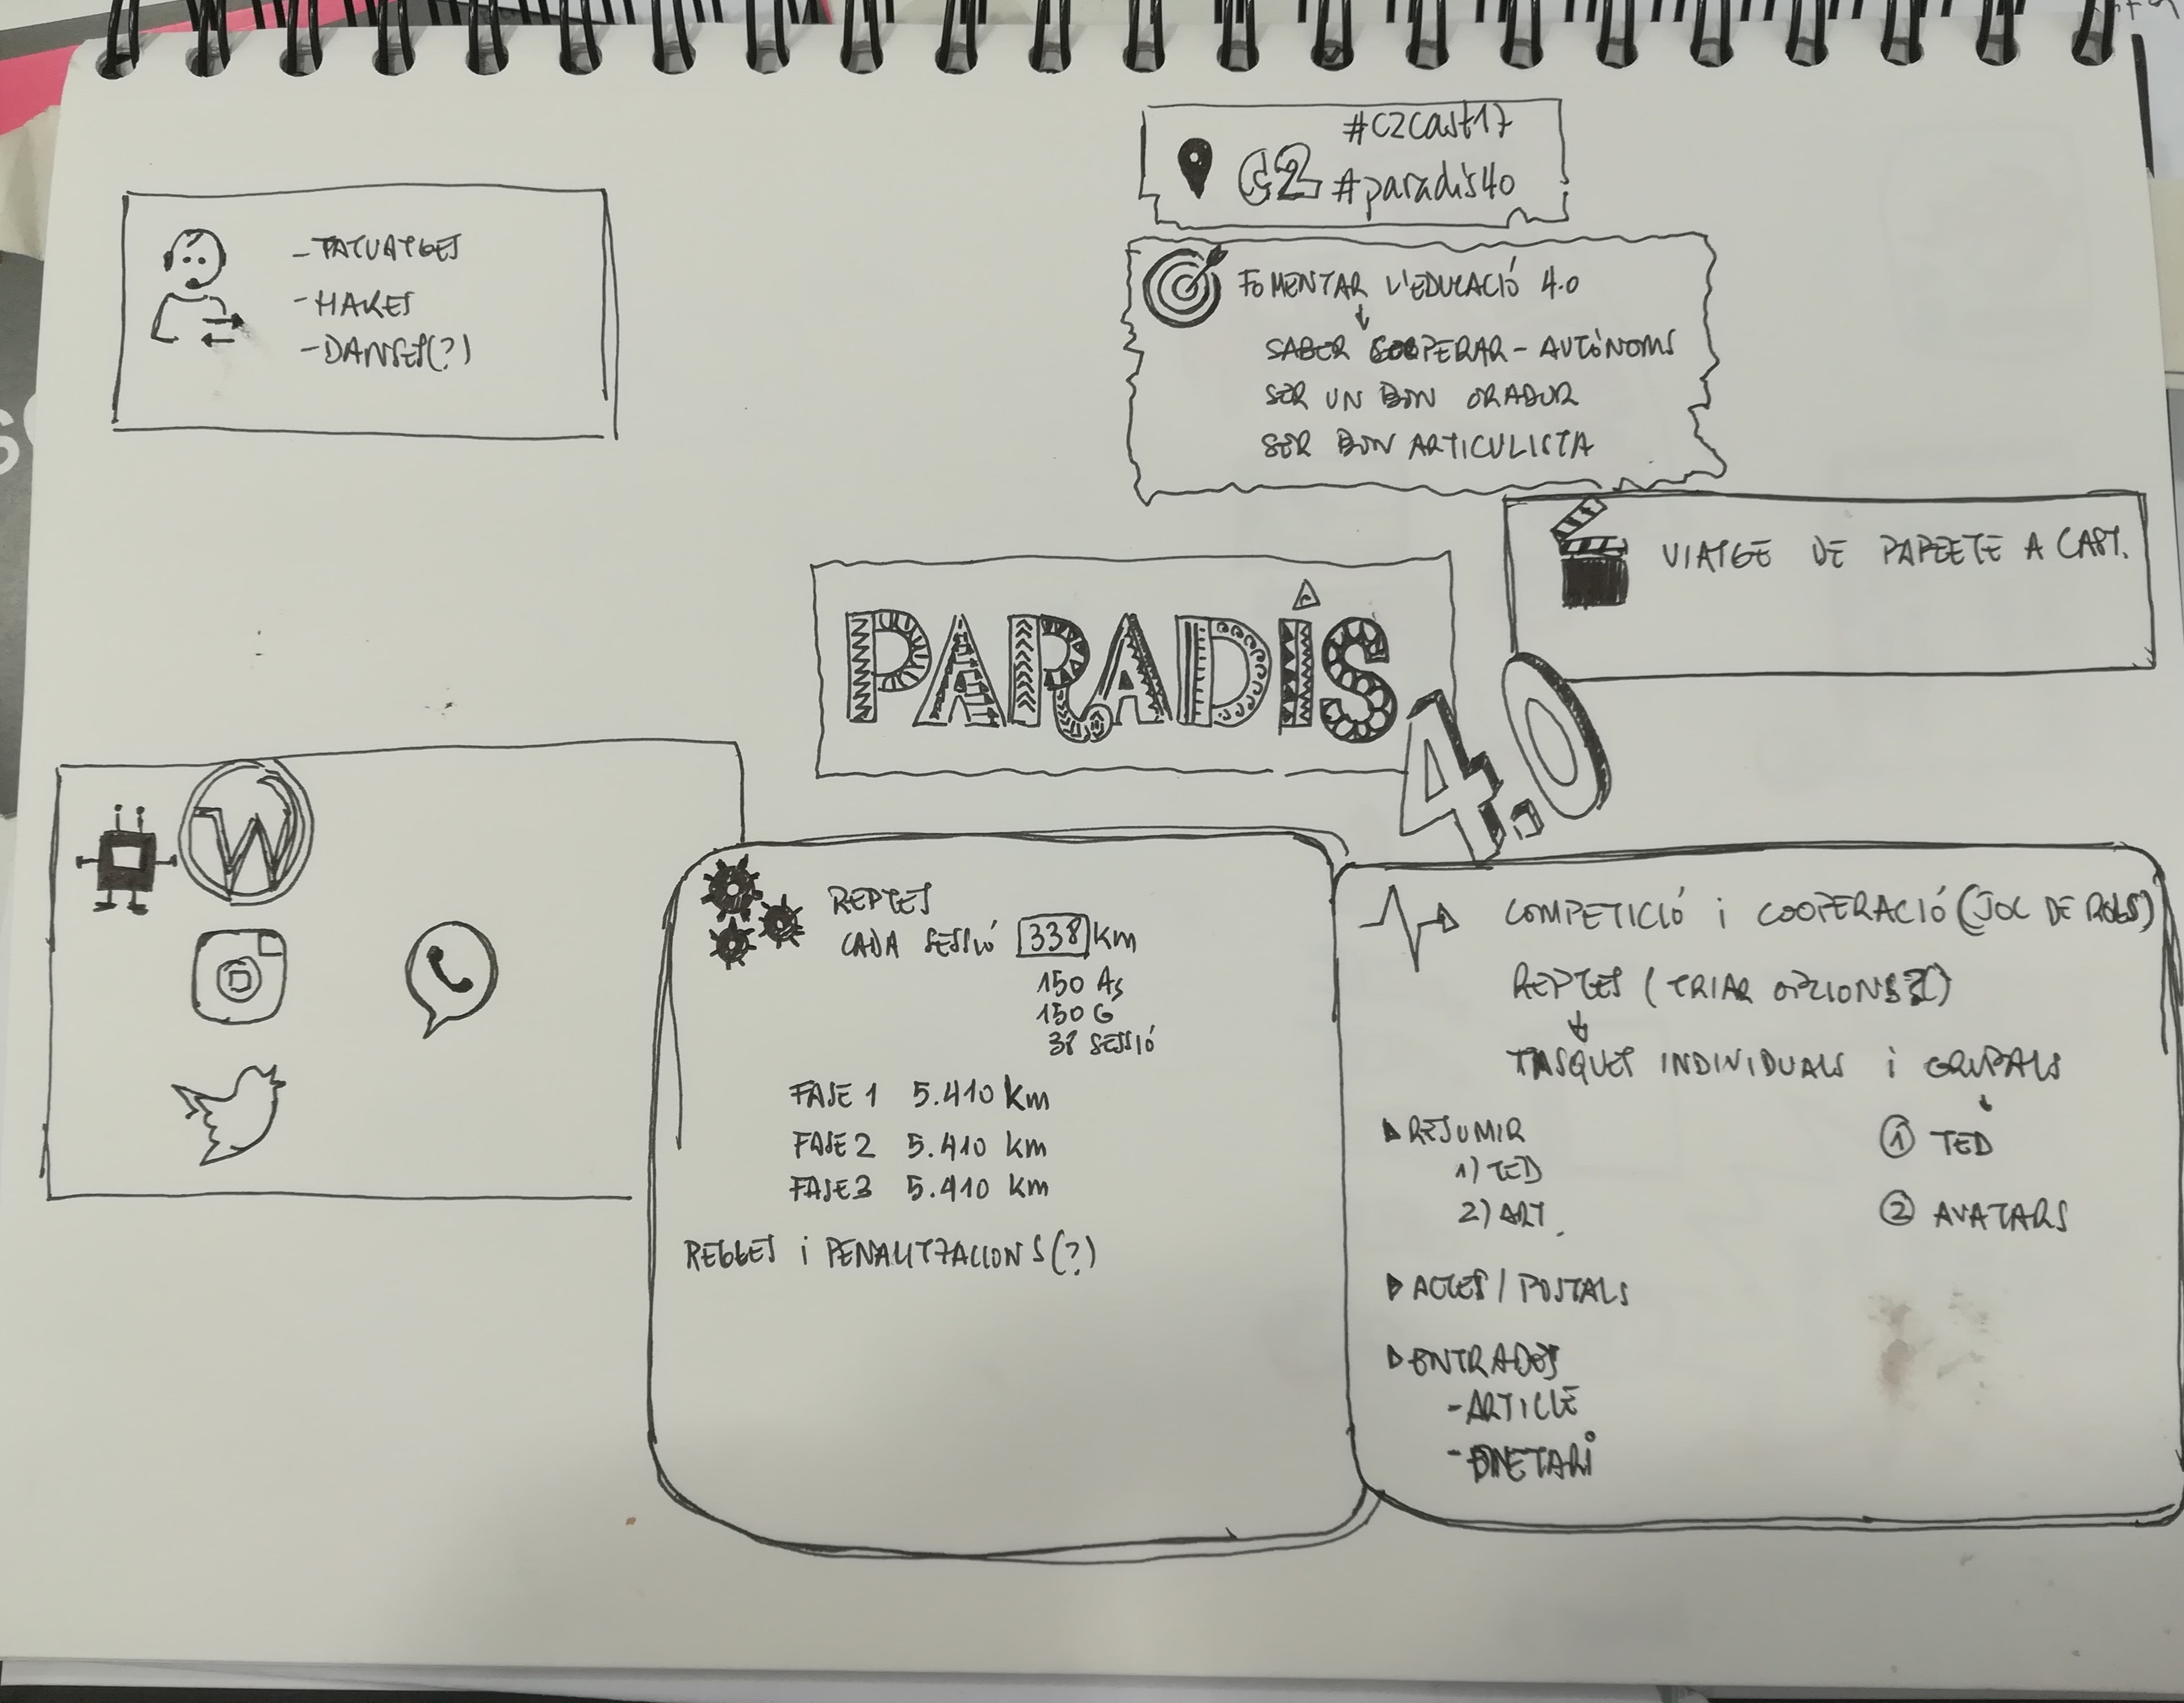 #C2Cast17
C2 #paradis40
- TATUATGES
- HAKES
- DANSES(?)
FOMENTAR L'EDUCACIÓ 4.0
SABER COOPERAR - AUTÒNOMS
SER UN BON ORADOR
SER BON ARTICULISTA
VIATGE DE PAPEETE A CAST.
PARADÍS
4.0
W
REPTES
CADA SESSIÓ 338 Km
150 As
150 G
38 SESSIÓ
FASE 1 5.410 Km
FASE 2 5.410 Km
FASE 3 5.410 Km
REGLES i PENALITZACIONS(?)
COMPETICIÓ i COOPERACIÓ (JOC DE ROLS)
REPTES (TRIAR OPCIONS?)
TASQUES INDIVIDUALS i GRUPALS
RESUMIR
1) TED
2) ART.
① TED
② AVATARS
ACTES / POSTALS
ENTRADES
- ARTICLE